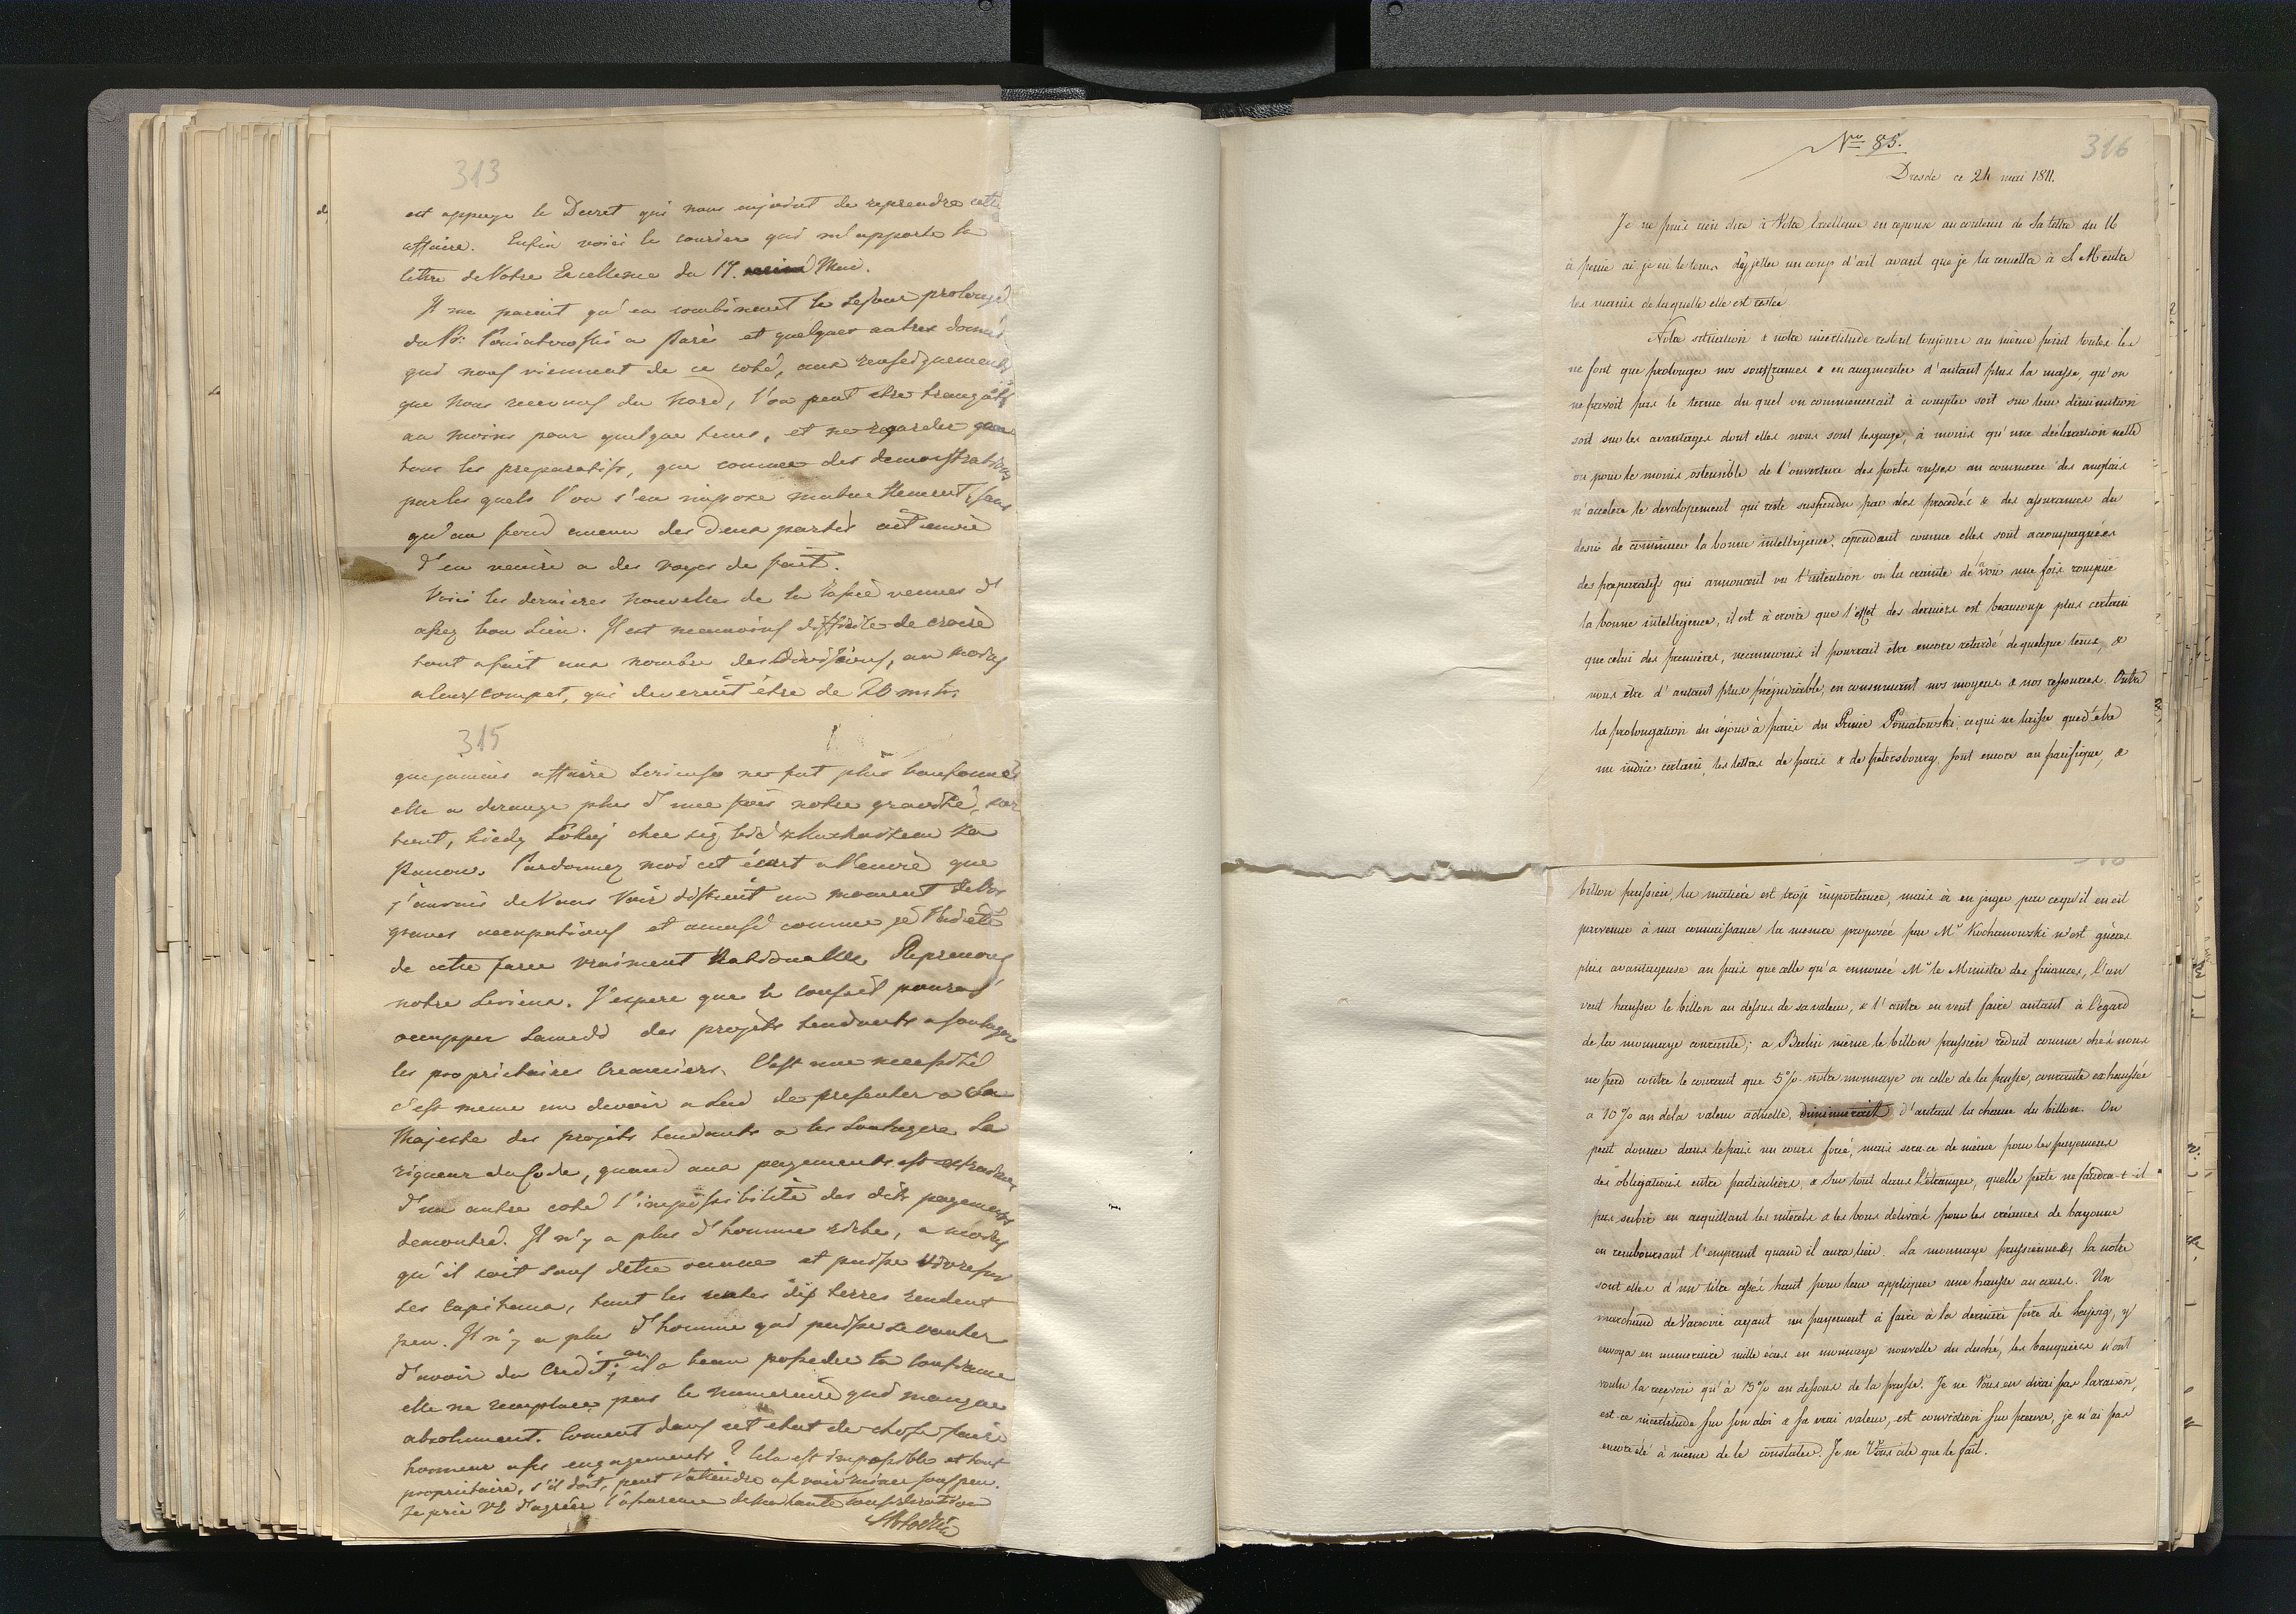 313
est appuye le Decret qui nous enjoint de reprendre cette
affaire. Enfin voici le courier qui m'apporte la
lettre de Votre Excellence du 17. Mai.
Il me parait qu'en combinant le sejour prolongé
du P: Poniatowski a Paris et quelques autres donnés
qui nous viennent de ce coté, aux renseignements
que nous recevons du Nord, l'on peut etre tranquille
au moins pour quelque tems, et ne regarder
tous les preparatifs, que comme des demonstrations
par les quels l'on s'en impose mutuellement, sans
qu'au fond aucun des deux partis ait envie
d'en venir a des voyes de fait.
Voici les dernieres nouvelles de la Russie venues d'
assez bon lieu. Il est neanmoins difficile de croire
tout a fait aux nombre des Divisions, au moins
a leurs complet, qui devereut être de 20 mil.
315
que jamais affaire serieuse ne fut plus bouffonne
elle a derangé plus d'une fois notre gravité, sur
tout, kiedy Sokoy chce się bić z
Panow. Pardonnez moi cet écart a l'envie que
j'aurais de Vous Voir distrait un moment de Vos
graves occupations et amusé comme je l'ai été
de cette farce vraiment Nationalle. Reprenons
notre serieux. J'espere que le Conseil pourra
occupper Samedi des projets tendants a soulager
les proprietaires Creanciers. C'est une necessité
c'est meme un devoir a lui de presenter a Sa
Majesté des projets tendants a les soulager. La
rigueur du Code, quand aux payements est
d'un autre coté l'impossibilité des dits payements
demontré. Il n'y a plus d'homme riche, a moins
qu'il soit sans dette aucune et puisse vivre sur
ses Capitaux, tant les rentes des terres rendent
peu. Il n'y a plus d'homme qui puisse se vanter
d'avoir du Credit; car il a beau posseder la confiance
elle ne remplace pas le numeraire qui manque
absolument. Coment dans cet etat de chose faire
honneur a ses engagements? Cela est impossible et tout
proprietaire, s'il doit, peut s'attendre a se voir miner sous peu.
Je prie VE d'agréer l'assurance de ma haute consideration
No 85.
316
Dresde ce 24 mai 1811.
Je ne puis rien dire à Votre Excellence en reponse au contenu de Sa lettre du 16
à peine ai je eu le tems d'y jetter un coup d'œil avant que je la remette à S M entre
les mains de laquelle elle est restée
Notre situation & notre incertitude restent toujours au même point toutes les
ne font que prolonger nos souffrances & en augmenter d'autant plus la masse, qu'on
ne prevoit pas le terme du quel on commencerait à compter soit sur leur diminution
soit sur les avantages dont elles nous sont le gage, à moins qu'une declaration nette
ou pour le moins ostensible de l'ouverture des ports russes au commerce des anglais
n'accelere le developement qui reste suspendu par des procedés & des assurances du
desir de continuer la bonne intelligence. cependant comme elles sont accompagnées
des preparatifs qui annoncent ou l'intention ou la crainte de voir une fois rompue
la bonne intelligence, il est à croire que l'effet des derniers est beaucoup plus certain
que celui des premieres, neanmoins il pourrait être encore retardé de quelque tems, &
nous être d'autant plus prejudiciable, en consumant nos moyens & nos ressources. Outre
la prolongation du séjour à paris du Prince Poniatowski ce qui ne laisse que d'etre
un indice certain, les lettres de paris & de petersbourg sont encore au pacifique, &
billon prussien la matiére est trop importante, mais à en juger par ce qu'il en est
parvenu à ma connaissance la mesure proposée par Mr Kochanowski n'est guères
plus avantageuse au païs que celle qu'a ennoncé Mr le Ministre des finances, l'un
veut hausser le billon au dessus de sa valeur, & l'autre en veut faire autant à l'égard
de la monnaye courante; a Berlin même le billon prussien reduit comme chés nous
ne perd contre le courant que 5%. notre monnaye ou celle de la prusse, courante exhaussée
a 10% au dela valeur actuelle, diminuerait d'autant la chance du billon. On
peut donner dans le païs un cours forcé, mais sera-ce de même pour les payemens
des obligations entre particuliers, & sur tout dans l'étranger, quelle perte ne faudra-t-il
pas subir en acquittant les interets & les bons delivrés pour les créances de bayonne
en remboursant l'emprunt quand il aura lieu. La monnaye prussienne & la notre
sont elles d'un titre assés haut pour leur appliquer une hausse au cours. Un
marchand de Varsovie ayant un payement à faire à la derniere foire de Leipzig, y
envoya en numeraire mille écus en monnaye nouvelle du duché, les banquiers n'ont
voulu la recevoir qu'à 15% au dessous de la prusse. Je ne Vous en dirai pas la raison,
est-ce incertitude sur son aloi & sa vrai valeur, est conviction sur preuve, je n'ai pas
encore été à même de le constater. Je ne Vous cite que le fait.